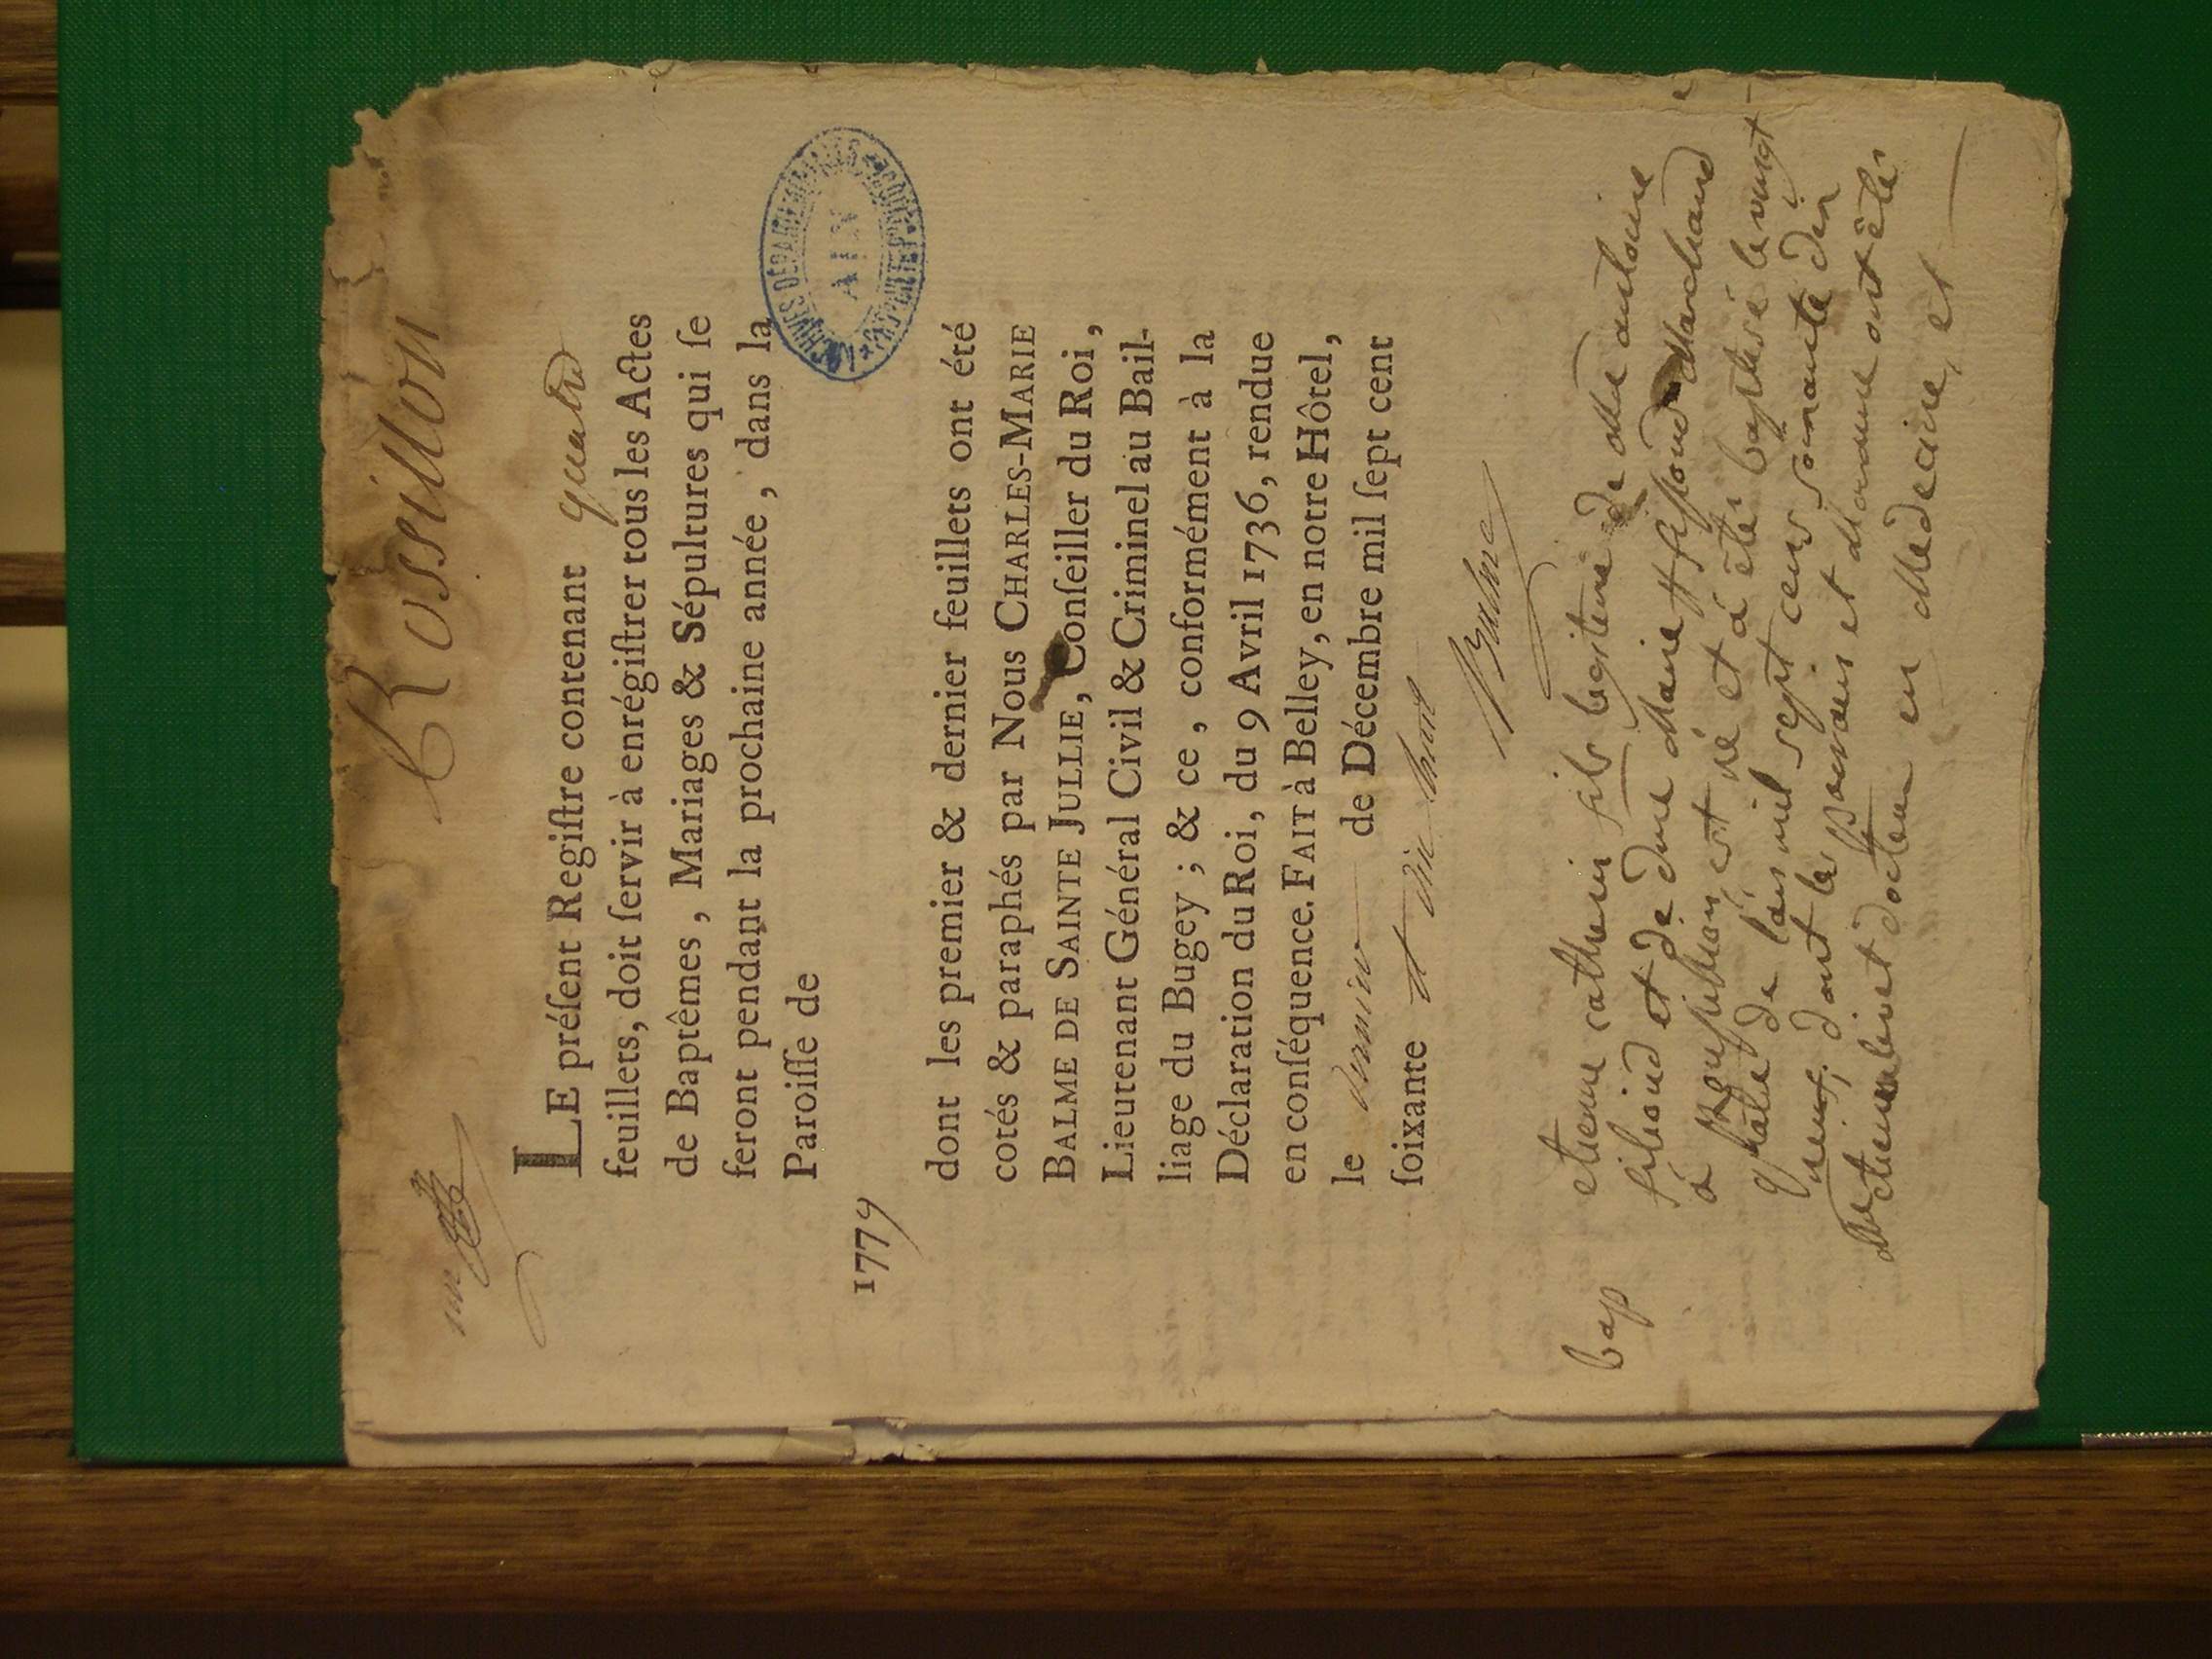 Rossillon
un
LE préſent Regiſtre contenant quatre
feuillets, doit ſervir à enrégiſtrer tous les Actes
de Baptêmes, Mariages & Sépultures qui ſe
feront pendant la prochaine année, dans la
Paroiſſe de
ARCHIVES DÉPARTEMENTALES
AIN
1779
dont les premier & dernier feuillets ont été
cotés & paraphés par Nous CHARLES-MARIE
BALME DE SAINTE JULLIE, Conſeiller du Roi,
Lieutenant Général Civil & Criminel au Bail-
liage du Bugey; & ce, conformément à la
Déclaration du Roi, du 9 Avril 1736, rendue
en conſéquence. FAIT à Belley, en notre Hôtel,
le premier de Décembre mil ſept cent
ſoixante et dix huit
Balme
bap etienne catherin fils legitime de Me antoine
filioud et de dme Marie
à Roussillion, est né et à étés baptisé le vingt-
quatre de l'an mil sept cens soixante dix
neuf, dont les parrain et Marraine ont étés
docteur en Médecine, et